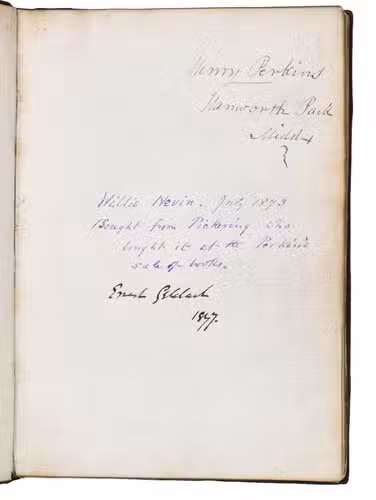 Henry Perkins
Hanworth Park
Middx
Willis Nevin. July 1873
Bought from Pickering who
bought it at the Perkins
sale of books.
Ernest